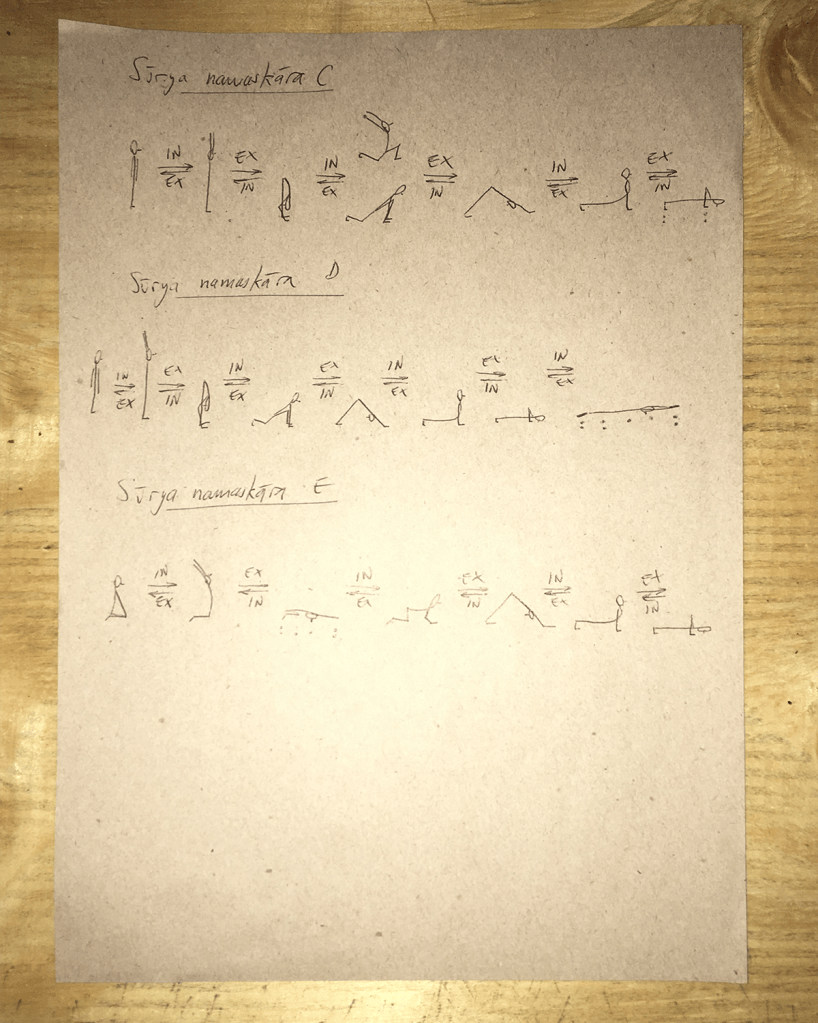 Sūrya namaskāra C
IN EX IN EX IN EX
EX IN EX IN EX IN
Sūrya namaskāra D
IN EX IN EX IN EX IN
EX IN EX IN EX IN EX
Sūrya namaskāra E
IN EX IN EX IN EX
EX IN EX IN EX IN